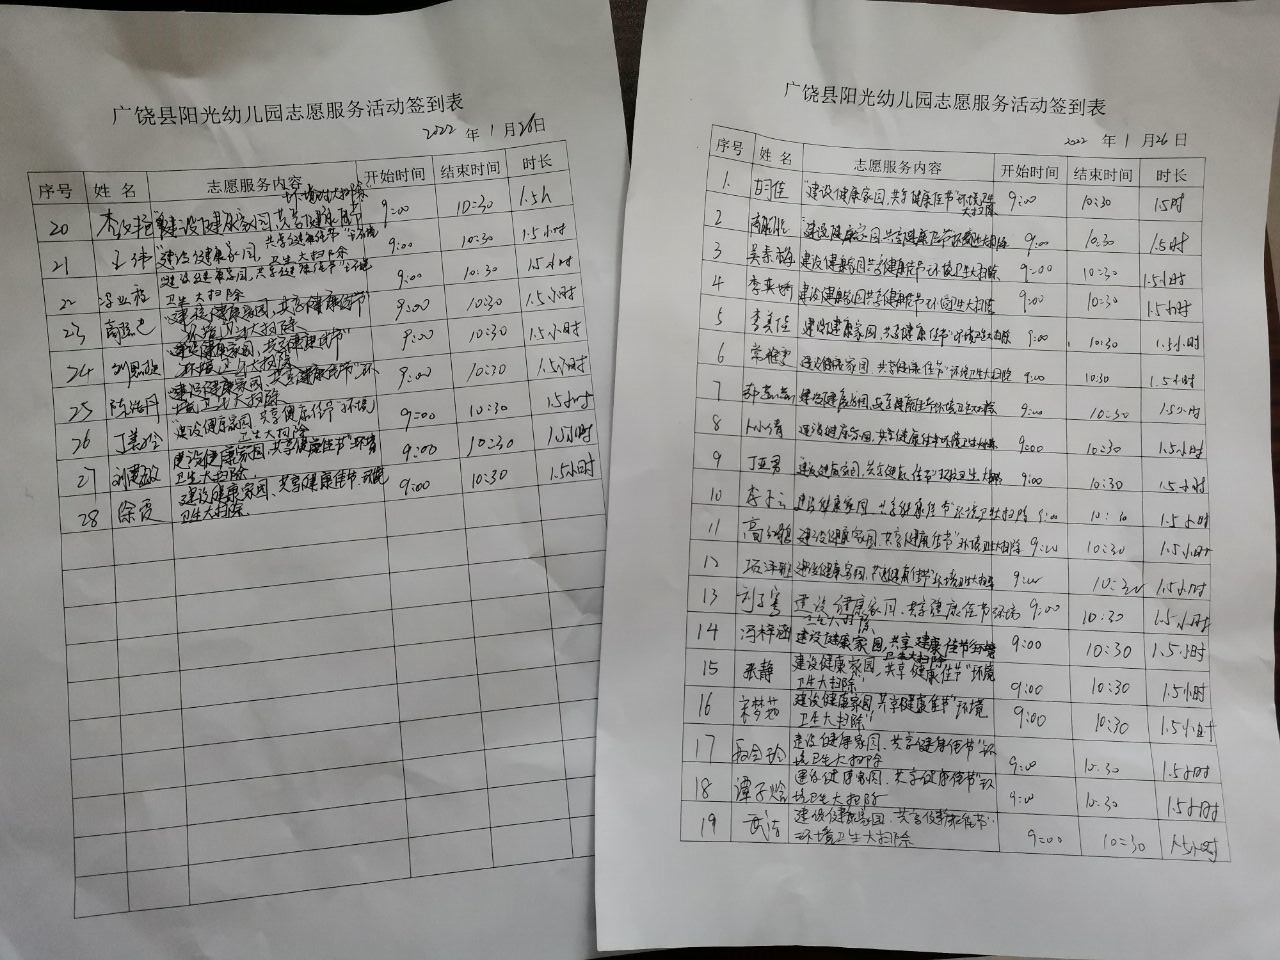 广饶县阳光幼儿园志愿服务活动签到表
2022 年 1 月 26 日
序号 姓 名 志愿服务内容 开始时间 结束时间 时长
20 "建设健康家园,共享健康佳节 环境卫生大扫除 9:00 10:30 1.5h
21 王伟 "建设健康家园,共享健康佳节"环境卫生大扫除 9:00 10:30 1.5小时
22 建设健康家园,共享健康佳节"环境卫生大扫除 9:00 10:30 1.5小时
23 "建设健康家园,共享健康佳节"环境卫生大扫除 9:00 10:30 1.5小时
24 建设健康家园,共享健康佳节"环境卫生大扫除 9:00 10:30 1.5小时
25 建设健康家园,共享健康佳节"环境卫生大扫除 9:00 10:30 1.5小时
26 "建设健康家园 共享健康佳节"环境卫生大扫除 9:00 10:30 1.5小时
27 建设健康家园,共享健康佳节"环境卫生大扫除 9:00 10:30 1.5小时
28 徐霞 建设健康家园、共享健康佳节 环境卫生大扫除 9:00 10:30 1.5小时
广饶县阳光幼儿园志愿服务活动签到表
2022 年 1 月 26 日
序号 姓 名 志愿服务内容 开始时间 结束时间 时长
1. 胡佳 "建设健康家园,共享健康佳节"环境卫生大扫除 9:00 10:30 1.5时
2 "建设健康家园,共享健康佳节环境卫生大扫除 9:00 10:30 1.5时
3 吴素梅 建设健康家园共享健康佳节环境卫生大扫除 9:00 10:30 1.5小时
4 建设健康家园共享健康佳节环境卫生大扫除 9:00 10:30 1.5小时
5 李美佳 建设健康家园,共享健康佳节"环境卫生大扫除 9:00 10:30 1.5小时
6 建设健康家园,共享健康佳节"环境卫生大扫除 9:00 10:30 1.5小时
7 建设健康家园,共享健康佳节环境卫生大扫除 9:00 10:30 1.5小时
8 建设健康家园,共享健康佳节环境卫生大扫除 9:00 10:30 1.5小时
9 丁亚男 建设健康家园,共享健康佳节"环境卫生大扫除 9:00 10:30 1.5小时
10 建设健康家园,共享健康佳节"环境卫生大扫除 9:00 10:30 1.5小时
11 高红鹤 建设健康家园,共享健康佳节"环境卫生大扫除 9:00 10:30 1.5小时
12 建设健康家园,共享健康佳节"环境卫生大扫除 9:00 10:30 1.5小时
13 建设健康家园,共享健康佳节环境卫生大扫除 9:00 10:30 1.5小时
14 冯梓涵 建设健康家园,共享健康佳节环境卫生大扫除 9:00 10:30 1.5小时
15 张静 建设健康家园,共享健康佳节"环境卫生大扫除 9:00 10:30 1.5小时
16 宋梦茹 建设健康家园,共享健康佳节"环境卫生大扫除" 9:00 10:30 1.5小时
17 建设健康家园、共享健康佳节"环境卫生大扫除 9:00 10:30 1.5小时
18 谭子烩 建设健康家园、共享健康佳节"环境卫生大扫除 9:00 10:30 1.5小时
19 武洁 建设健康家园、共享健康佳节"环境卫生大扫除 9:00 10:30 1.5小时